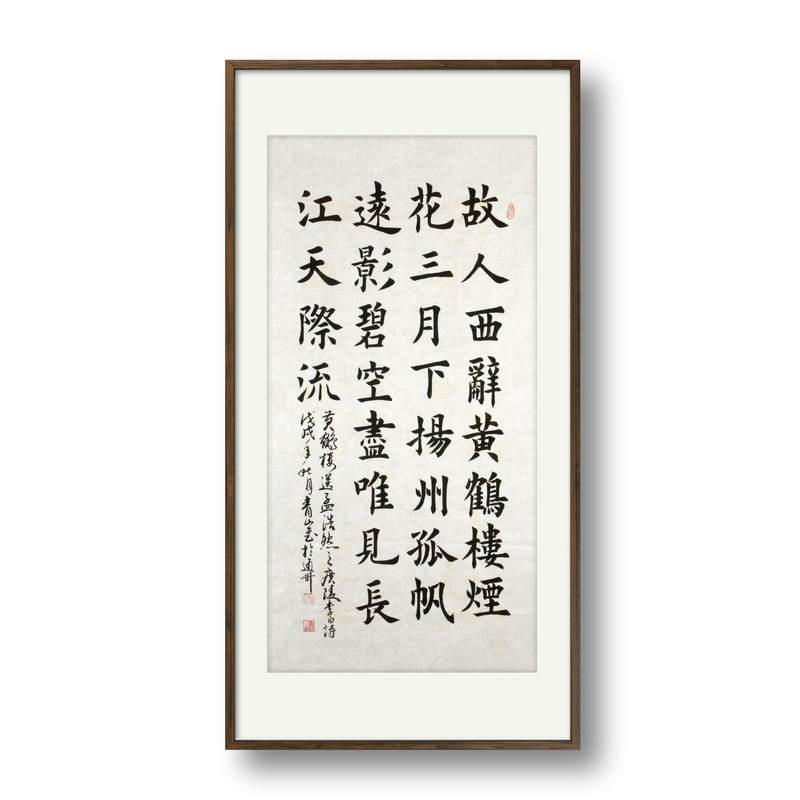 故人西辭黄鶴樓煙
花三月下揚州孤帆
遠影碧空盡唯見長
江天際流
黄鶴樓送孟浩然之廣陵李白詩
戊戌年秋月青山書於通州